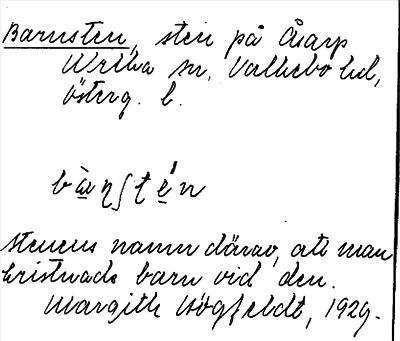 Barnsten, sten på Åsarp
Wrtha sn, Valkebo hd,
Österg. l.
bàɳʃtén
Stenens namn därav, att man
kristnade barn vid den.
Margith Högfeldt, 1929.